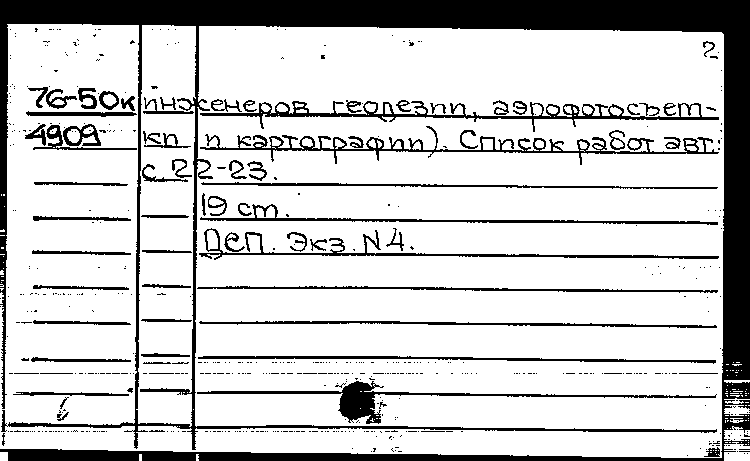 2
76-50к инженеров геодезии, аэрофотосъем-
4909 ки и картографии). Список работ авт.:
с. 22-23.
19 cm.
Деп. Экз. N 4.